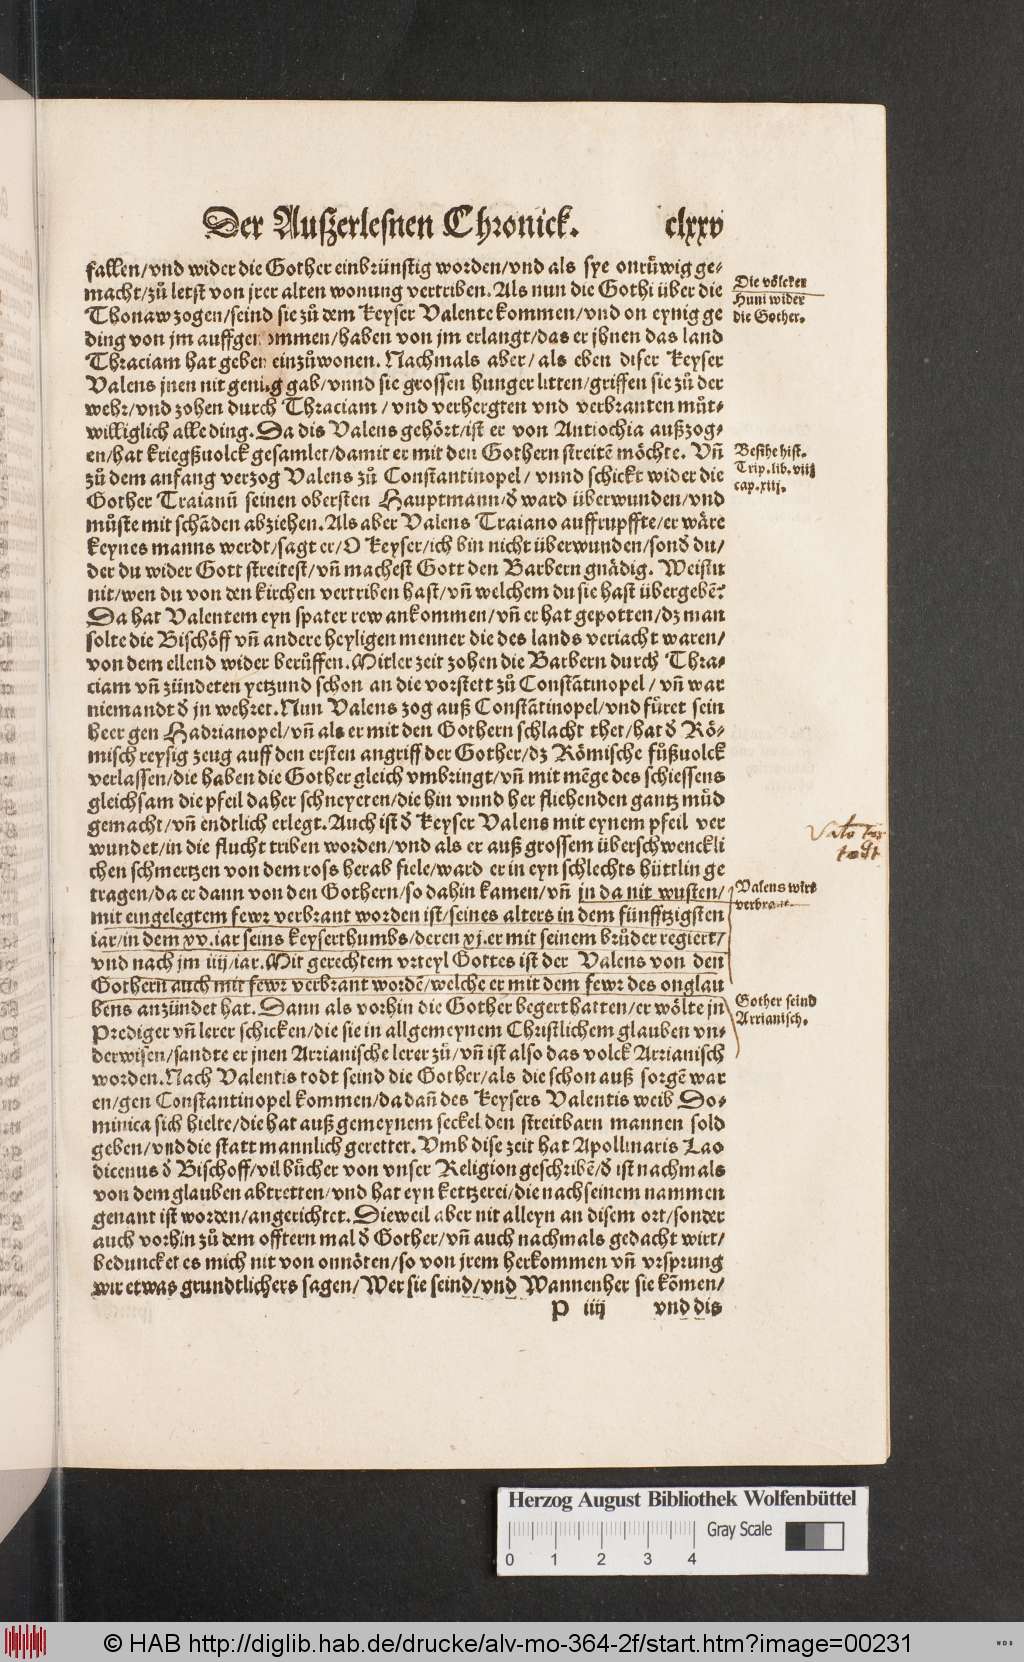 Der Außerlesnen Chronick. clxxv
fallen/vnd wider die Gother einbrünstig worden/vnd als sye onrüwig ge-
macht/zů letst von jrer alten wonung vertriben. Als nun die Gothi über die
Thonaw zogen/seind sie zů dem Keyser Valente kommen/vnd on eynig ge
ding von jm auffgenommen/haben von jm erlangt/das er jhnen das land
Thraciam hat geben einzůwonen. Nachmals aber/als eben diser Keyser
Valens jnen nit genůg gab/vnnd sie grossen hunger litten/griffen sie zů der
wehr/vnd zohen durch Thraciam/vnd verhergten vnd verbranten můt-
williglich alle ding. Da dis Valens gehört/ist er von Antiochia außzog-
en/hat kriegßuolck gesamlet/damit er mit den Gothern streitē möchte. Vñ
zů dem anfang verzog Valens zů Constantinopel/vnnd schickt wider die
Gother Traianū seinen obersten Hauptmann/d̄ ward überwunden/vnd
můste mit schaden abziehen. Als aber Valens Traiano auffrupffte/er wäre
keynes manns werdt/sagt er/O Keyser/ich bin nicht überwunden/sond̄ du/
der du wider Gott streitest/vñ machest Gott den Barbern gnädig. Weistu
nit/wen du von den kirchen vertriben hast/vñ welchem du sie hast übergebē?
Da hat Valentem eyn spater rew ankommen/vñ er hat gepotten/dz man
solte die Bischöff vñ andere heyligen menner die des lands veriacht waren/
von dem ellend wider berůffen. Mitler zeit zohen die Barbern durch Thra-
ciam vñ zündeten yetzund schon an die vorstett zů Constātinopel/vñ war
niemandt d̄ jn wehret. Nun Valens zog auß Constātinopel/vnd füret sein
heer gen Hadrianopel/vñ als er mit den Gothern schlacht thet/hat d̄ Rö-
misch reysig zeug auff den ersten angriff der Gother/dz Römische fůßuolck
verlassen/die haben die Gother gleich vmbringt/vñ mit mēge des schiessens
gleichsam die pfeil daher schneyeten/die hin vnnd her fliehenden gantz můd
gemacht/vñ endtlich erlegt. Auch ist d̄ Keyser Valens mit eynem pfeil ver
wundet/in die flucht triben worden/vnd als er auß grossem überschwenckli
chen schmertzen von dem ross herab fiele/ward er in eyn schlechts hüttlin ge
tragen/da er dann von den Gothern/so dahin kamen/vñ jn da nit wusten/
mit eingelegtem fewr verbrant worden ist/seines alters in dem fünfftzigsten
iar/in dem xv. iar seins keyserthumbs/deren xj. er mit seinem brůder regiert/
vnd nach jm iiij/iar. Mit gerechtem vrteyl Gottes ist der Valens von den
Gothern auch mit fewr verbrant wordē/welche er mit dem fewr des onglau
bens anzündet hat. Dann als vorhin die Gother begert hatten/er wölte jn
Prediger vñ lerer schicken/die sie in allgemeynem Christlichem glauben vn-
derwisen/sandte er jnen Arrianische lerer zů/vñ ist also das volck Arrianisch
worden. Nach Valentis todt seind die Gother/als die schon auß sorgē war
en/gen Constantinopel kommen/da dañ des Keysers Valentis weib Do-
minica sich hielte/die hat auß gemeynem seckel den streitbarn mannen sold
geben/vnd die statt mannlich gerettet. Vmb dise zeit hat Apollinaris Lao
dicenus d̄ Bischoff/vil bücher von vnser Religion geschribē/d̄ ist nachmals
von dem glauben abtretten/vnd hat eyn kettzerei/die nach seinem nammen
genant ist worden/angerichtet. Dieweil aber nit alleyn an disem ort/sonder
auch vorhin zů dem offtern mal d̄ Gother/vñ auch nachmals gedacht wirt/
beduncket es mich nit von onnöten/so von jrem herkommen vñ vrsprung
wir etwas grundtlichers sagen/Wer sie seind/vnd Wannenher sie kömen/
P iiij vnd dis
Die völcker
Huni wider
die Gother.
Besihe hist.
Trip. lib. viij
cap. xiij.
Valens wirt
verbrant
Gother seind
Arrianisch.
Herzog August Bibliothek Wolfenbüttel
0 1 2 3 4
Gray Scale
© HAB http://diglib.hab.de/drucke/alv-mo-364-2f/start.htm?image=00231